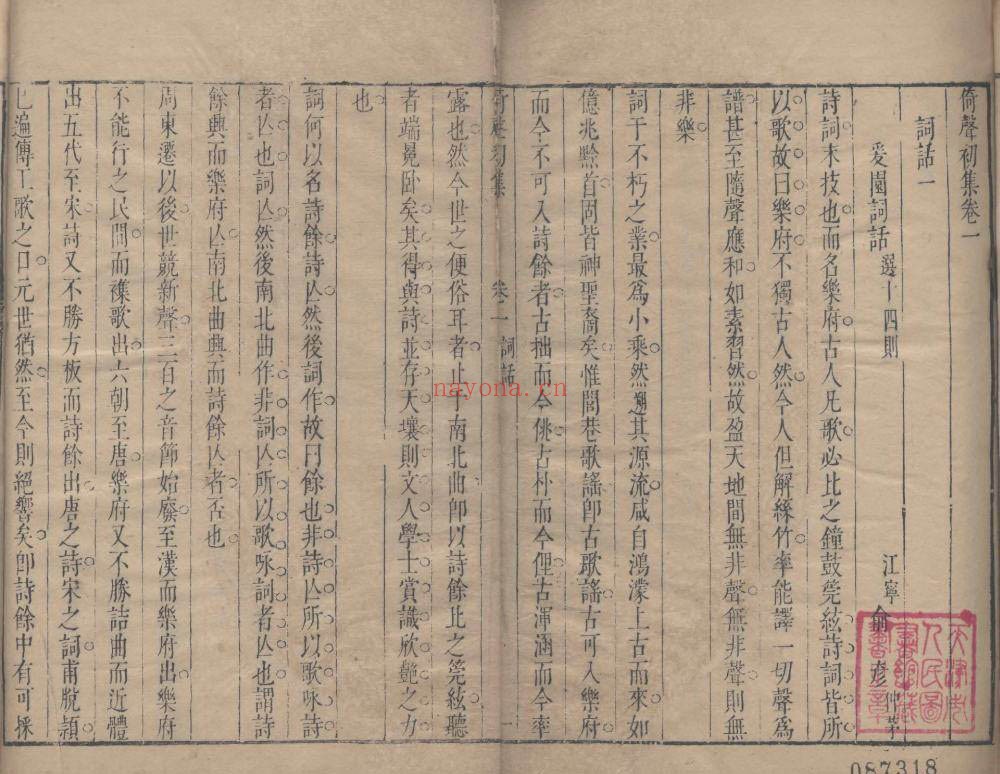 倚聲初集卷一
詞話一
江寧俞彥仲茅
爰園詞話選十四則
詩詞末技也而名樂府古人凡歌必比之鐘鼓筦絃詩詞皆所
以歌故曰樂府不獨古人然今人但解絲竹率能譯一切聲爲
譜甚至隨聲應和如素習然故盈天地間無非聲無非聲則無
非樂
詞于不朽之業最爲小乘然遡其源流咸自鴻濛上古而來如
億兆黔首固皆神聖裔矣惟閭巷歌謠卽古歌謠古可入樂府
而今不可入詩餘者古拙而今佻古朴而今俚古渾涵而今率
倚聲初集
卷一
詞話
一
露也然今世之便俗耳者止于南北曲卽以詩餘比之筦絃聽
者端冕卧矣其得與詩並存天壤則文人學士賞識欣艶之力
也
詞何以名詩餘詩亾然後詞作故曰餘也非詩亾所以歌咏詩
者亾也詞亾然後南北曲作非詞亾所以歌咏詞者亾也謂詩
餘興而樂府亾南北曲興而詩餘亾者否也
周東遷以後世競新聲三百之音節始廢至漢而樂府出樂府
不能行之民間而襍歌出六朝至唐樂府又不勝詰曲而近體
出五代至宋詩又不勝方板而詩餘出唐之詩宋之詞甫脫頴
已遍傳工歌之口元世猶然至今則絕響矣卽詩餘中有可採
天津市
人民圖
書館藏
書章
nayona.cn
087318